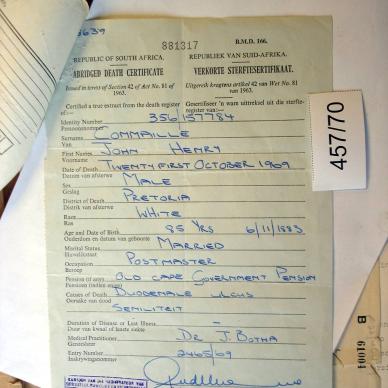 3639
881317
B.M.D. 166.
REPUBLIC OF SOUTH AFRICA.
REPUBLIEK VAN SUID-AFRIKA.
ABRIDGED DEATH CERTIFICATE
VERKORTE STERFTESERTIFIKAAT.
Issued in terms of Section 42 of Act No. 81 of 1963.
Uitgereik kragtens artikel 42 van Wet No. 81 van 1963.
Certified a true extract from the death register of:—
Gesertifiseer 'n ware uittreksel uit die sterfteregister van:—
Identity Number 356/157784
Persoonsnommer
Surname COMMAILLE
Van
First Names JOHN HENRY
Voorname
Date of Death TWENTY FIRST OCTOBER 1969
Datum van afsterwe
Sex MALE
Geslag
District of Death PRETORIA
Distrik van afsterwe
Race WHITE
Ras
Age and Date of Birth 85 YRS 6/11/1883
Ouderdom en datum van geboorte
Marital Status MARRIED
Huwelikstaat
Occupation POSTMASTER
Beroep
Pension (if any) OLD CAPE GOVERNMENT PENSION
Pensioen (indien enige)
Causes of Death DUODENALE ULCUS
Oorsake van dood
SENILITEIT
Duration of Disease or Last Illness
Duur van kwaal of laaste siekte
Medical Practitioner DR J. BOTHA
Geneesheer
Entry Number 2465/69
Inskrywingsnommer
457/70
B